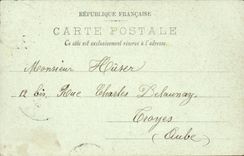 RÉPUBLIQUE FRANÇAISE
CARTE POSTALE
Ce côté est exclusivement réservé à l'adresse.
Monsieur Hüser
12 bis, Rue Charles Delaunay,
Troyes
Aube